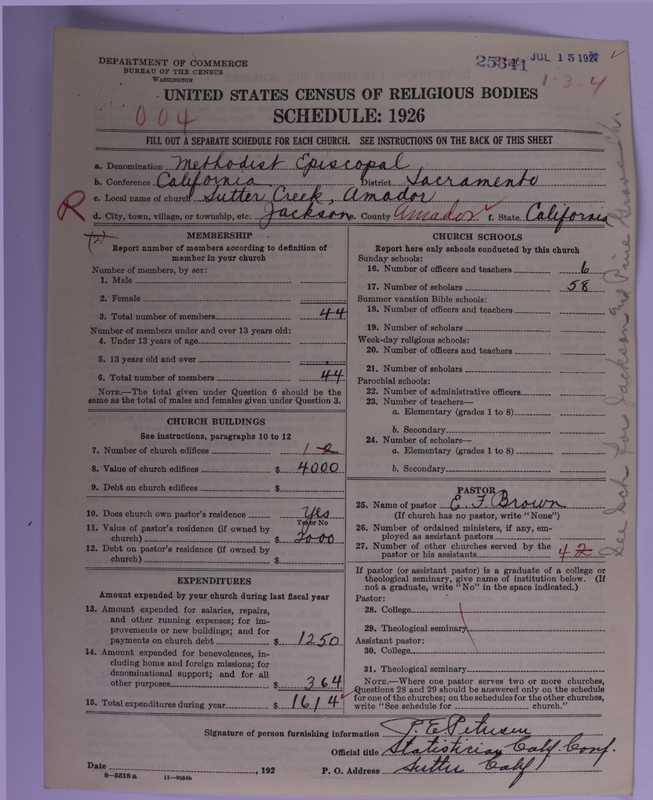 DEPARTMENT OF COMMERCE
BUREAU OF THE CENSUS
WASHINGTON
25341 JUL 15 1927
1-3-4
UNITED STATES CENSUS OF RELIGIOUS BODIES
004
SCHEDULE: 1926
FILL OUT A SEPARATE SCHEDULE FOR EACH CHURCH. SEE INSTRUCTIONS ON THE BACK OF THIS SHEET
a. Denomination Methodist Episcopal
b. Conference California District Sacramento
c. Local name of church Sutter Creek, Amador
R d. City, town, village, or township, etc. Jackson e. County Amador f. State California
(2)
MEMBERSHIP
Report number of members according to definition of
member in your church
Number of members, by sex:
1. Male
2. Female
3. Total number of members 44
Number of members under and over 13 years old:
4. Under 13 years of age
5. 13 years old and over
6. Total number of members 44
NOTE.—The total given under Question 6 should be the
same as the total of males and females given under Question 3.
CHURCH BUILDINGS
See instructions, paragraphs 10 to 12
7. Number of church edifices 1 2
8. Value of church edifices $ 4000
9. Debt on church edifices $
10. Does church own pastor's residence Yes
Yes or No
11. Value of pastor's residence (if owned by
church) $ 2000
12. Debt on pastor's residence (if owned by
church) $
EXPENDITURES
Amount expended by your church during last fiscal year
13. Amount expended for salaries, repairs,
and other running expenses; for im-
provements or new buildings; and for
payments on church debt $ 1250
14. Amount expended for benevolences, in-
cluding home and foreign missions; for
denominational support; and for all
other purposes $ 364
15. Total expenditures during year $ 1614
CHURCH SCHOOLS
Report here only schools conducted by this church
Sunday schools:
16. Number of officers and teachers 6
17. Number of scholars 58
Summer vacation Bible schools:
18. Number of officers and teachers
19. Number of scholars
Week-day religious schools:
20. Number of officers and teachers
21. Number of scholars
Parochial schools:
22. Number of administrative officers
23. Number of teachers—
a. Elementary (grades 1 to 8)
b. Secondary
24. Number of scholars—
a. Elementary (grades 1 to 8)
b. Secondary
PASTOR
25. Name of pastor E. F. Brown
(If church has no pastor, write "None")
26. Number of ordained ministers, if any, em-
ployed as assistant pastors
27. Number of other churches served by the
pastor or his assistants 4 2
If pastor (or assistant pastor) is a graduate of a college or
theological seminary, give name of institution below. (If
not a graduate, write "No" in the space indicated.)
Pastor:
28. College
29. Theological seminary
Assistant pastor:
30. College
31. Theological seminary
NOTE.—Where one pastor serves two or more churches,
Questions 28 and 29 should be answered only on the schedule
for one of the churches; on the schedules for the other churches,
write "See schedule for church."
See Sch for Jackson and Pine Grove
Signature of person furnishing information P. E. Petersen
Official title Statistician Calif Conf.
Date , 192 P. O. Address Sutter Calif
8—5518a 11—9054b